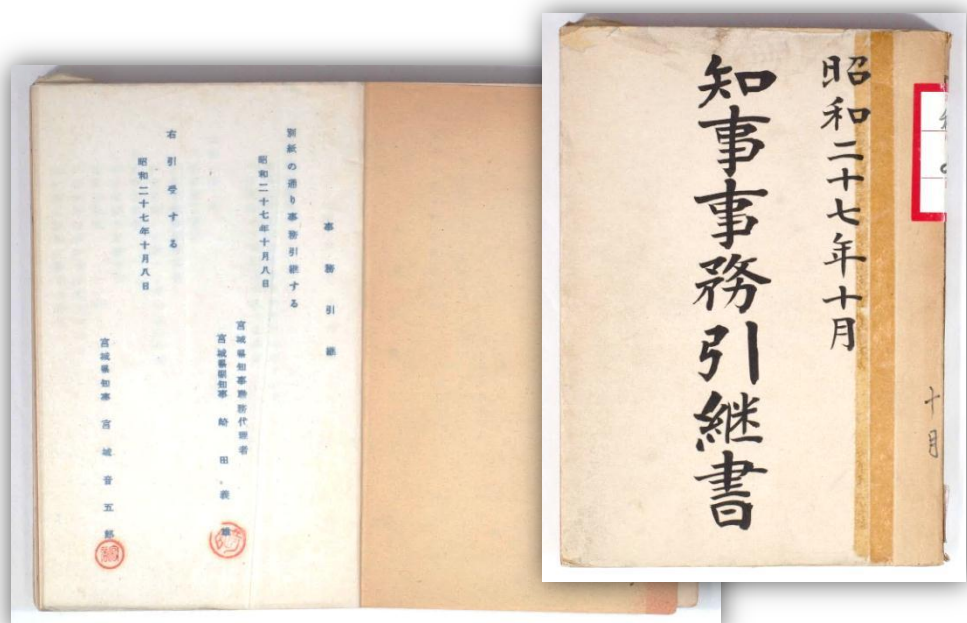 昭和二十七年十月
知事事務引継書
十月
事務引継
別紙の通り事務引継する
昭和二十七年十月八日
宮城県知事職務代理者
宮城県副知事 崎田義雄
右引受する
昭和二十七年十月八日
宮城県知事 宮城音五郎